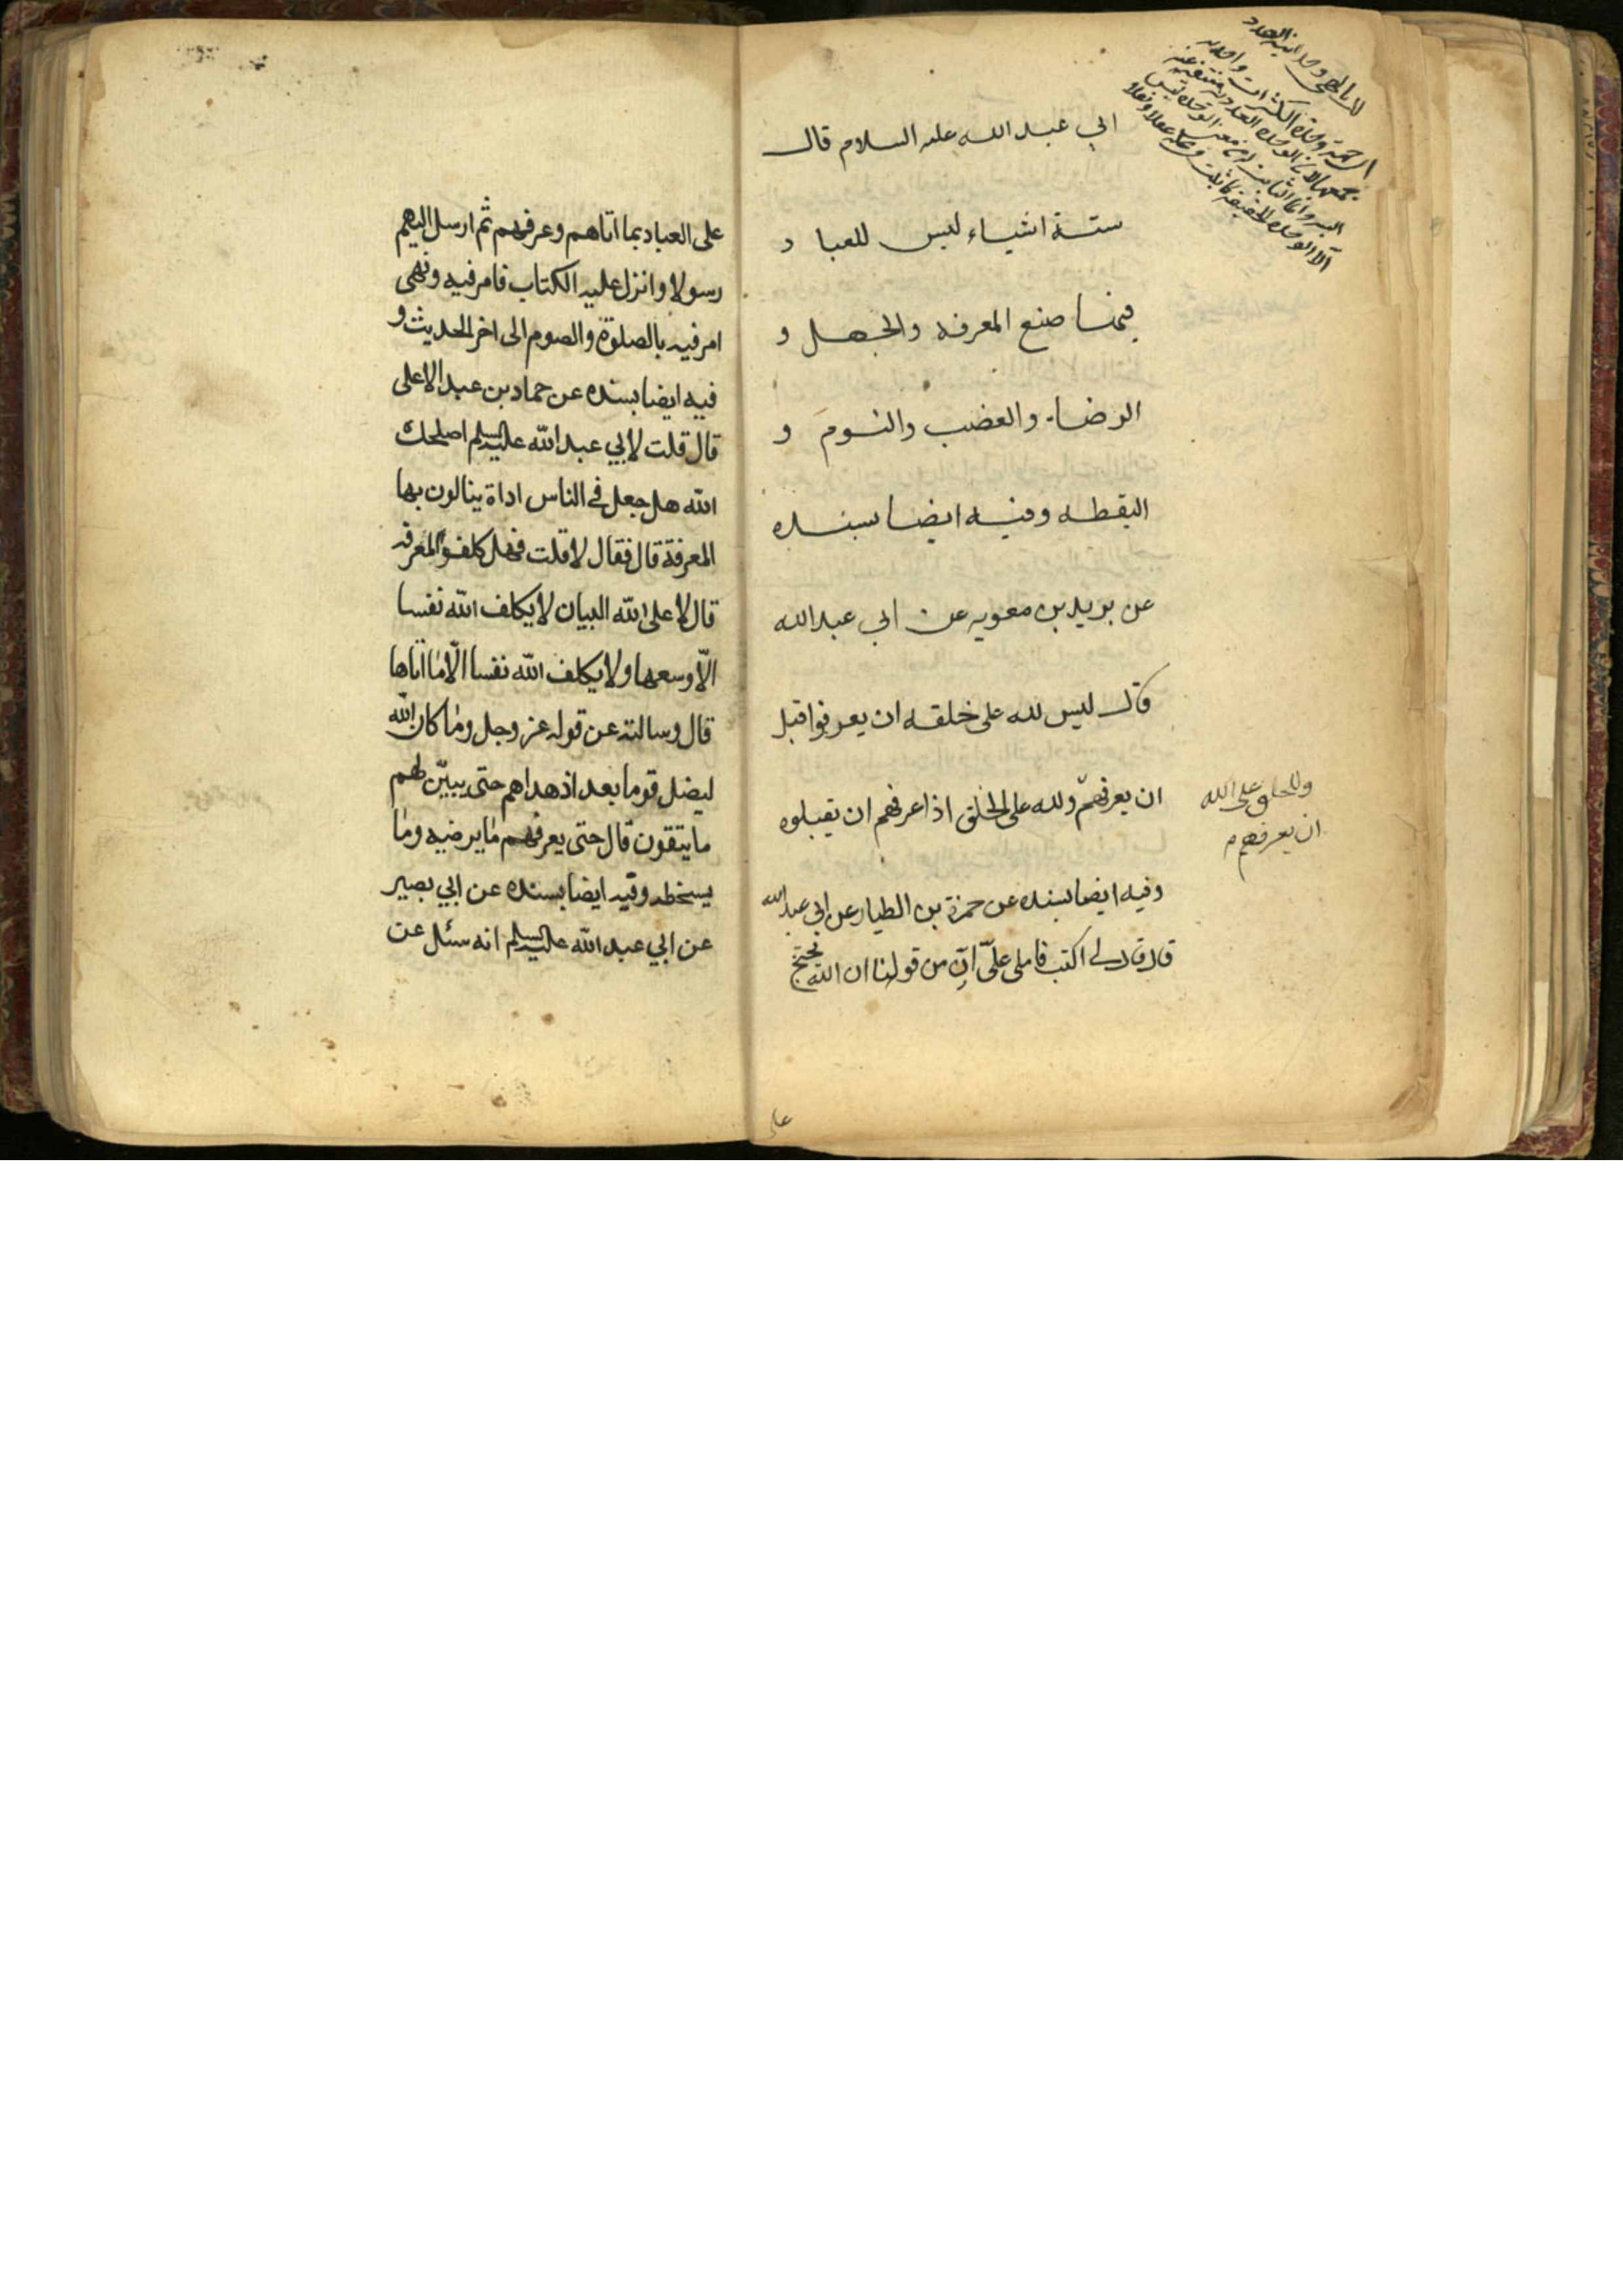 ابي عبد الله علىه السلام قال
ستة اشياء ليس للعباد
فيها صنع المعرفه والجهل و
الرضاء والغضب والنوم و
اليقظه وفيه ايضا بسنده
عن بريد بن معويه عن ابي عبدالله
قال ليس لله على خلقه ان يعرفوا قبل
ان يعرفهم ولله على الخلق اذا عرفهم ان يقبلوه
وفيه ايضا بسنده عن حمزة بن الطيار عن ابي عبدالله
قال قال لي اكتب فاملى علىّ انّ من قولنا ان الله يحتج
على
وللخلق على الله
ان يعرفهم م
على العباد بما اتاهم وعرفهم ثم ارسل اليهم
رسولا وانزل عليه الكتاب فامر فيه ونهى
امر فيه بالصلوة والصوم الى اخر الحديث و
فيه ايضا بسنده عن حماد بن عبد الاعلى
قال قلت لابي عبد الله عليه السلم اصلحك
الله هل جعل في الناس اداة ينالون بها
المعرفة قال فقال لا قلت فهل كلفوا المعرفه
قال لا على الله البيان لا يكلف الله نفسا
الّا وسعها ولا يكلف الله نفسا الّا ما اتاها
قال وسالته عن قوله عز وجل وما كان الله
ليضل قوما بعد اذ هداهم حتى يبيّن لهم
ما يتقون قال حتى يعرفهم ما يرضيه وما
يسخطه وفيه ايضا بسنده عن ابي بصير
عن ابي عبد الله عليه السلم انه سئل عن